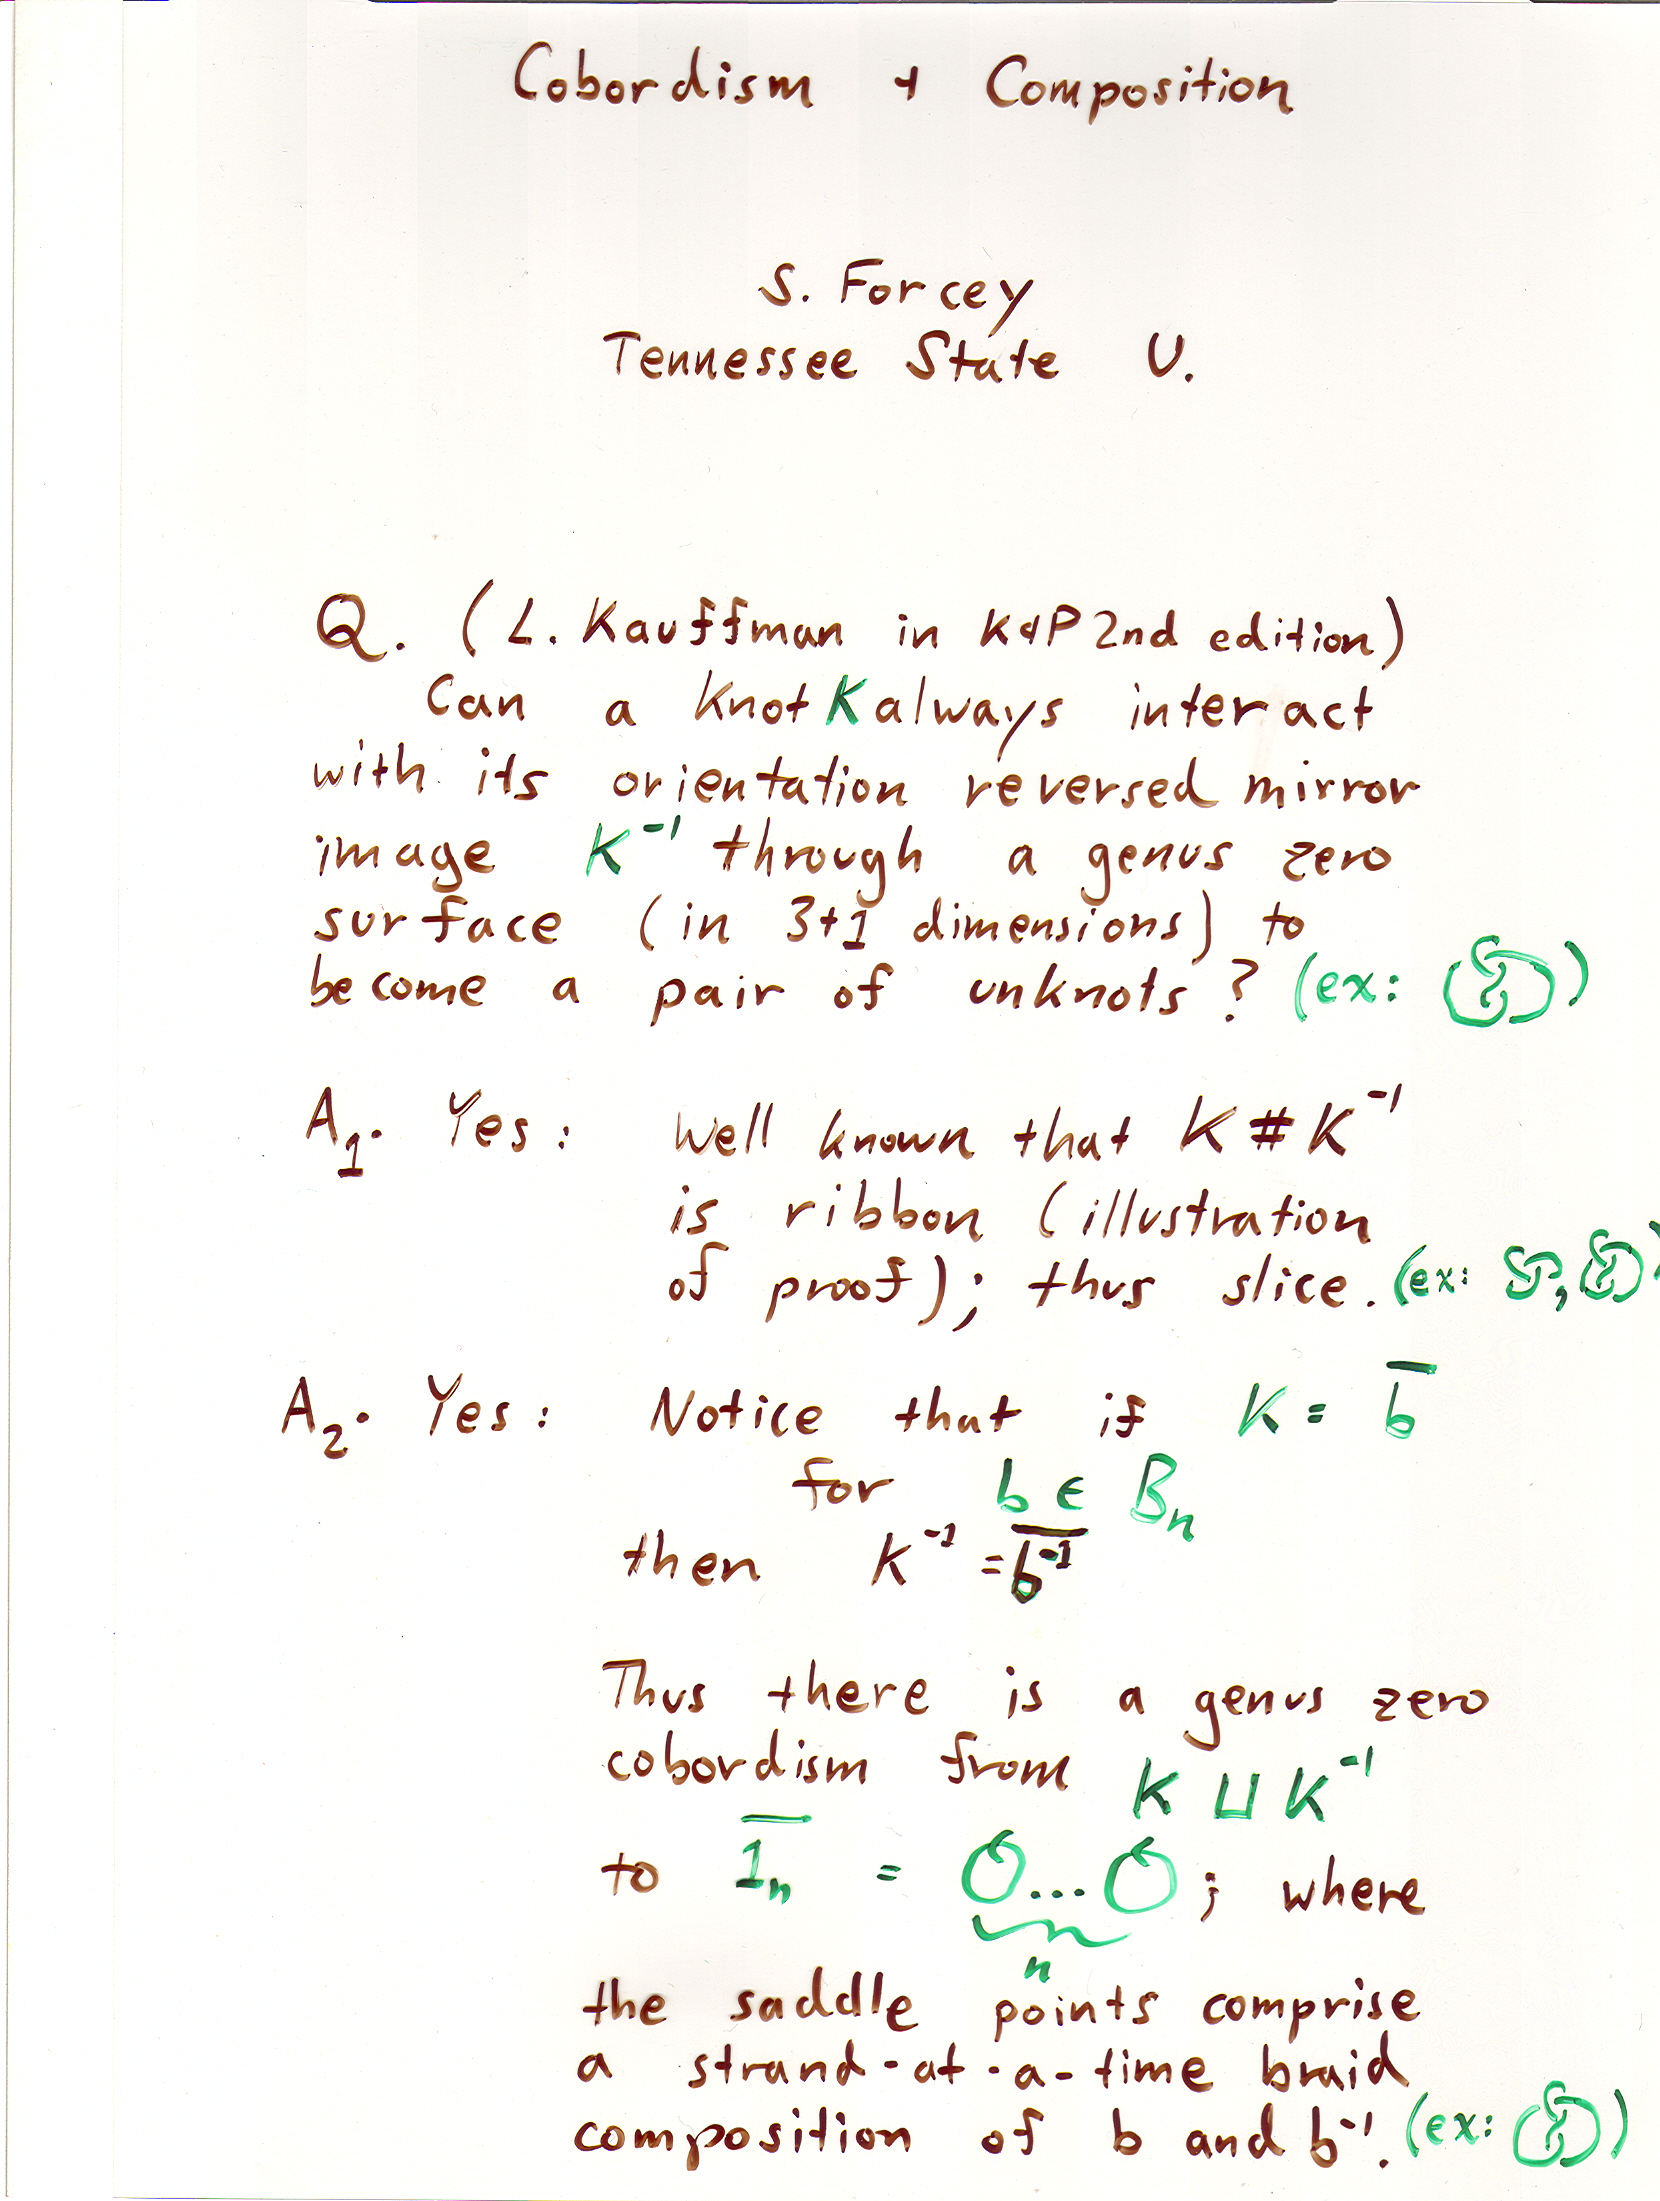 Cobordism & Composition
S. Forcey
Tennessee State U.
Q. (L. Kauffman in K&P 2nd edition)
Can a knot K always interact
with its orientation reversed mirror
image K⁻¹ through a genus zero
surface (in 3+1 dimensions) to
become a pair of unknots? (ex: )
A₁. Yes: Well known that K # K⁻¹
is ribbon (illustration
of proof); thus slice. (ex: , )
A₂. Yes: Notice that if K = b̅
for b ∈ Bₙ
then K⁻¹ = \overline{b⁻¹}
Thus there is a genus zero
cobordism from K ⊔ K⁻¹
to \overline{1ₙ} = O...O ; where
n
the saddle points comprise
a strand-at-a-time braid
composition of b and b⁻¹. (ex: )